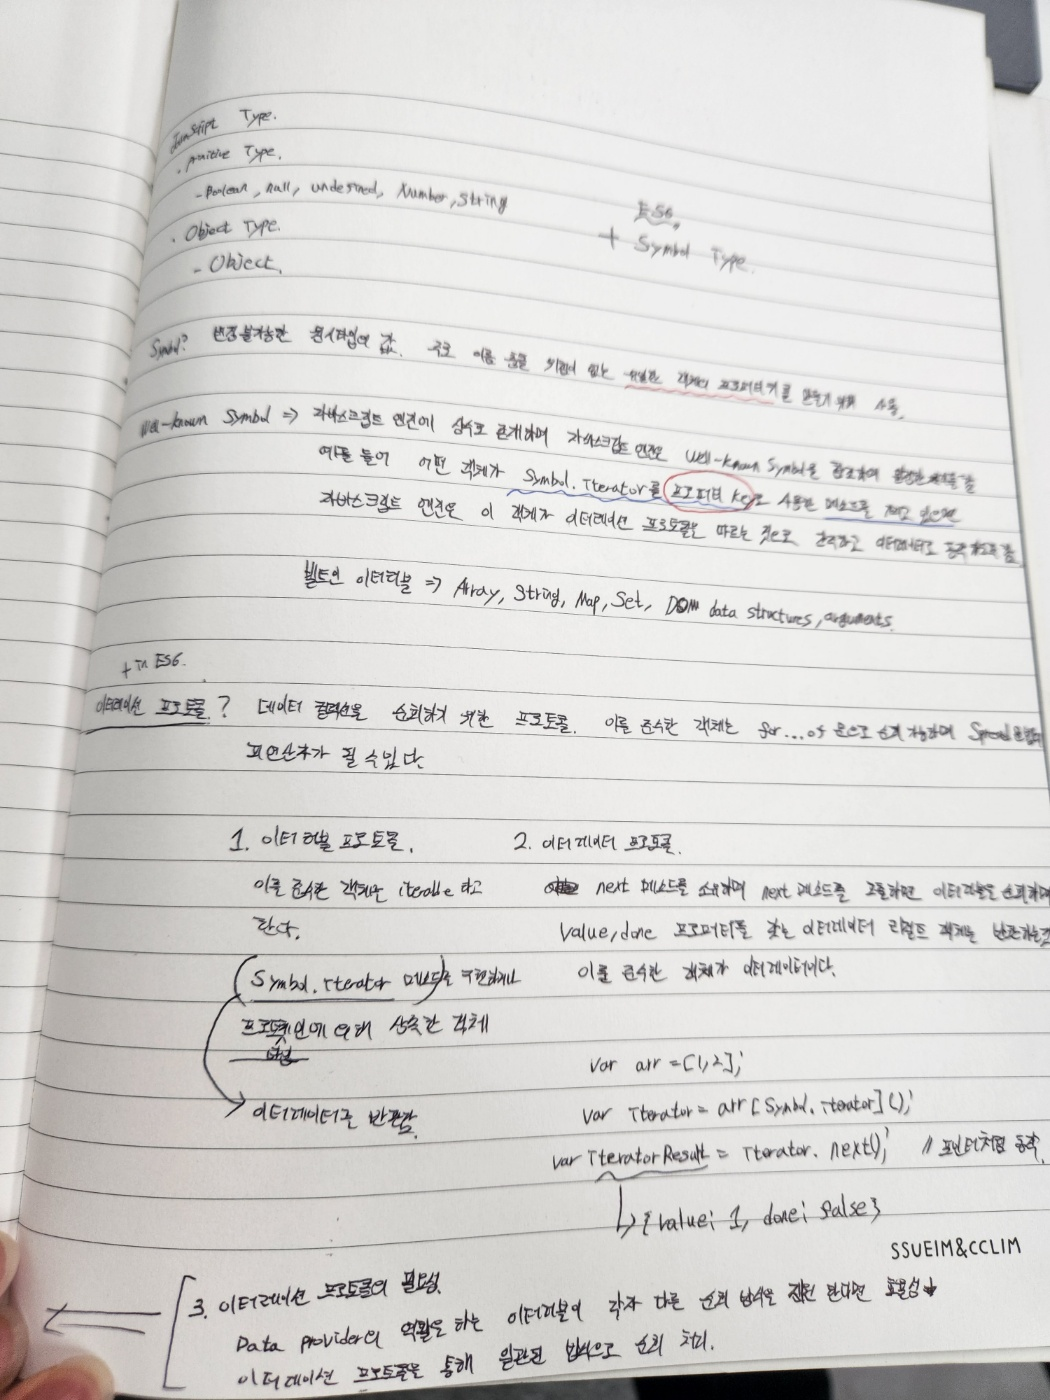 JavaScript Type.
· primitive Type.
- Boolean, null, undefined, Number, String
· Object Type.
- Object.
ES6.
+ Symbol Type.
Symbol? 변경 불가능한 원시타입의 값. 주로 이름 충돌 위험이 없는 유일한 객체의 프로퍼티 키를 만들기 위해 사용.
Well-known Symbol => 자바스크립트 엔진에 상수로 존재하며 자바스크립트 엔진은 Well-known Symbol을 참조하여 일정한 처리를 함
예를 들어 어떤 객체가 Symbol.Iterator를 프로퍼티 key로 사용한 메소드를 가지고 있으면
자바스크립트 엔진은 이 객체가 이터레이션 프로토콜을 따르는 것으로 간주하고 이터레이터로 동작하도록 함
빌트인 이터러블 => Array, String, Map, Set, DOM data structures, arguments.
+ In ES6.
이터레이션 프로토콜? 데이터 컬렉션을 순회하기 위한 프로토콜. 이를 준수한 객체는 for...of 문으로 순회 가능하며 Spread 문법의
피연산자가 될 수 있다.
1. 이터러블 프로토콜.
이를 준수한 객체만 iterable 라고
한다.
(Symbol.iterator 메소드)를 구현하거나
프로토타입에 의해 상속한 객체
이터레이터를 반환함.
2. 이터레이터 프로토콜.
next 메소드를 소유하며 next 메소드를 호출하면 이터러블을 순회하며
value, done 프로퍼티를 갖는 이터레이터 리절트 객체를 반환하는것
이를 준수한 객체가 이터레이터이다.
var arr = [1,2];
var Iterator = arr[Symbol.iterator]();
var IteratorResult = Iterator.next(); // 포인터처럼 동작.
{value: 1, done: false}
SSUEIM&CCLIM
3. 이터레이션 프로토콜의 필요성.
Data provider의 역할을 하는 이터러블이 각자 다른 순회 방식을 갖는다면 효율성↓
이터레이션 프로토콜을 통해 일관된 방식으로 순회 처리.